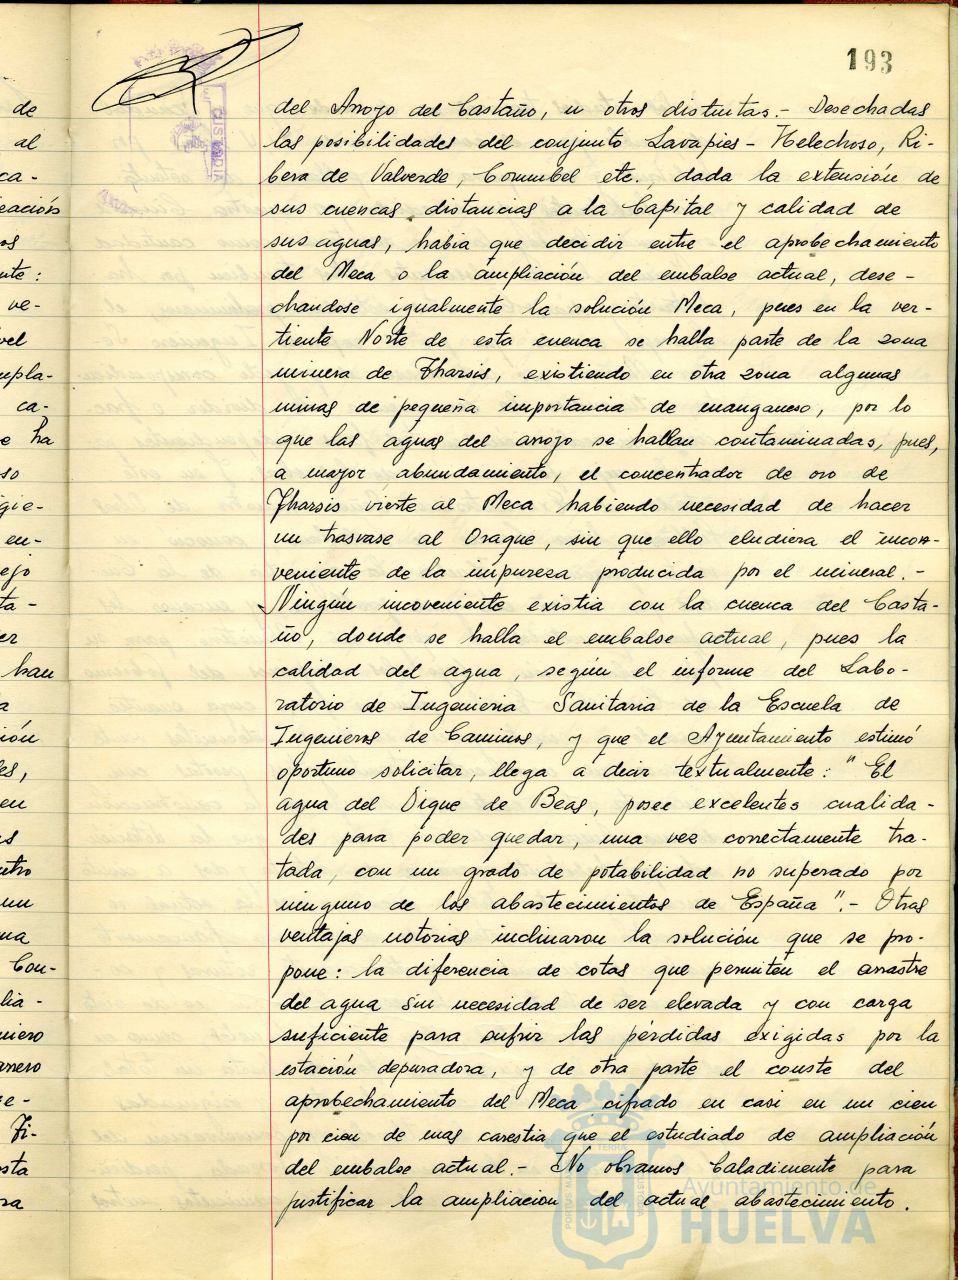 193
del Arroyo del Castaño, u otros distintas.- Desechadas
las posibilidades del conjunto Lavapies - Helechoso, Ri-
bera de Valverde, Corumbel etc., dada la extensión de
sus cuencas, distancias a la Capital y calidad de
sus aguas, habia que decidir entre el aprobechamiento
del Meca o la ampliación del embalse actual, dese-
chandose igualmente la solución Meca, pues en la ver-
tiente Norte de esta cuenca se halla parte de la zona
minera de Tharsis, existiendo en otra zona algunas
minas de pequeña importancia de manganeso, por lo
que las aguas del arroyo se hallan contaminadas, pues,
a mayor abundamiento, el concentrador de oro de
Tharsis vierte al Meca habiendo necesidad de hacer
un trasvase al Oraque, sin que ello eludiera el incon-
veniente de la impureza producida por el mineral.-
Ningún incoveniente existia con la cuenca del Casta-
ño, donde se halla el embalse actual, pues la
calidad del agua, según el informe del Labo-
ratorio de Ingenieria Sanitaria de la Escuela de
Ingenieros de Caminos, y que el Ayuntamiento estimó
oportuno solicitar, llega a decir textualmente: "El
agua del Dique de Beas, posee excelentes cualida-
des para poder quedar, una vez correctamente tra-
tada, con un grado de potabilidad no superado por
ninguno de los abastecimientos de España".- Otras
ventajas notorias inclinaron la solución que se pro-
pone: la diferencia de cotas que permiten el arrastre
del agua sin necesidad de ser elevada y con carga
suficiente para sufrir las pérdidas exigidas por la
estación depuradora, y de otra parte el conste del
aprobechamiento del Meca cifrado en casi en un cien
por cien de mas carestia que el estudiado de ampliación
del embalse actual.- No obramos baladimente para
justificar la ampliacion del actual abastecimiento.
Ayuntamiento de
HUELVA
de
al
ca-
eación
os
nte:
ve-
vel
mpla-
ca-
e ha
so
gie-
en-
ejo
ta-
er
han
a
ión
les,
en
s
ntro
un
ua
Con-
lia-
niero
arrero
e-
Fi-
sta
ra
CUSTODIA